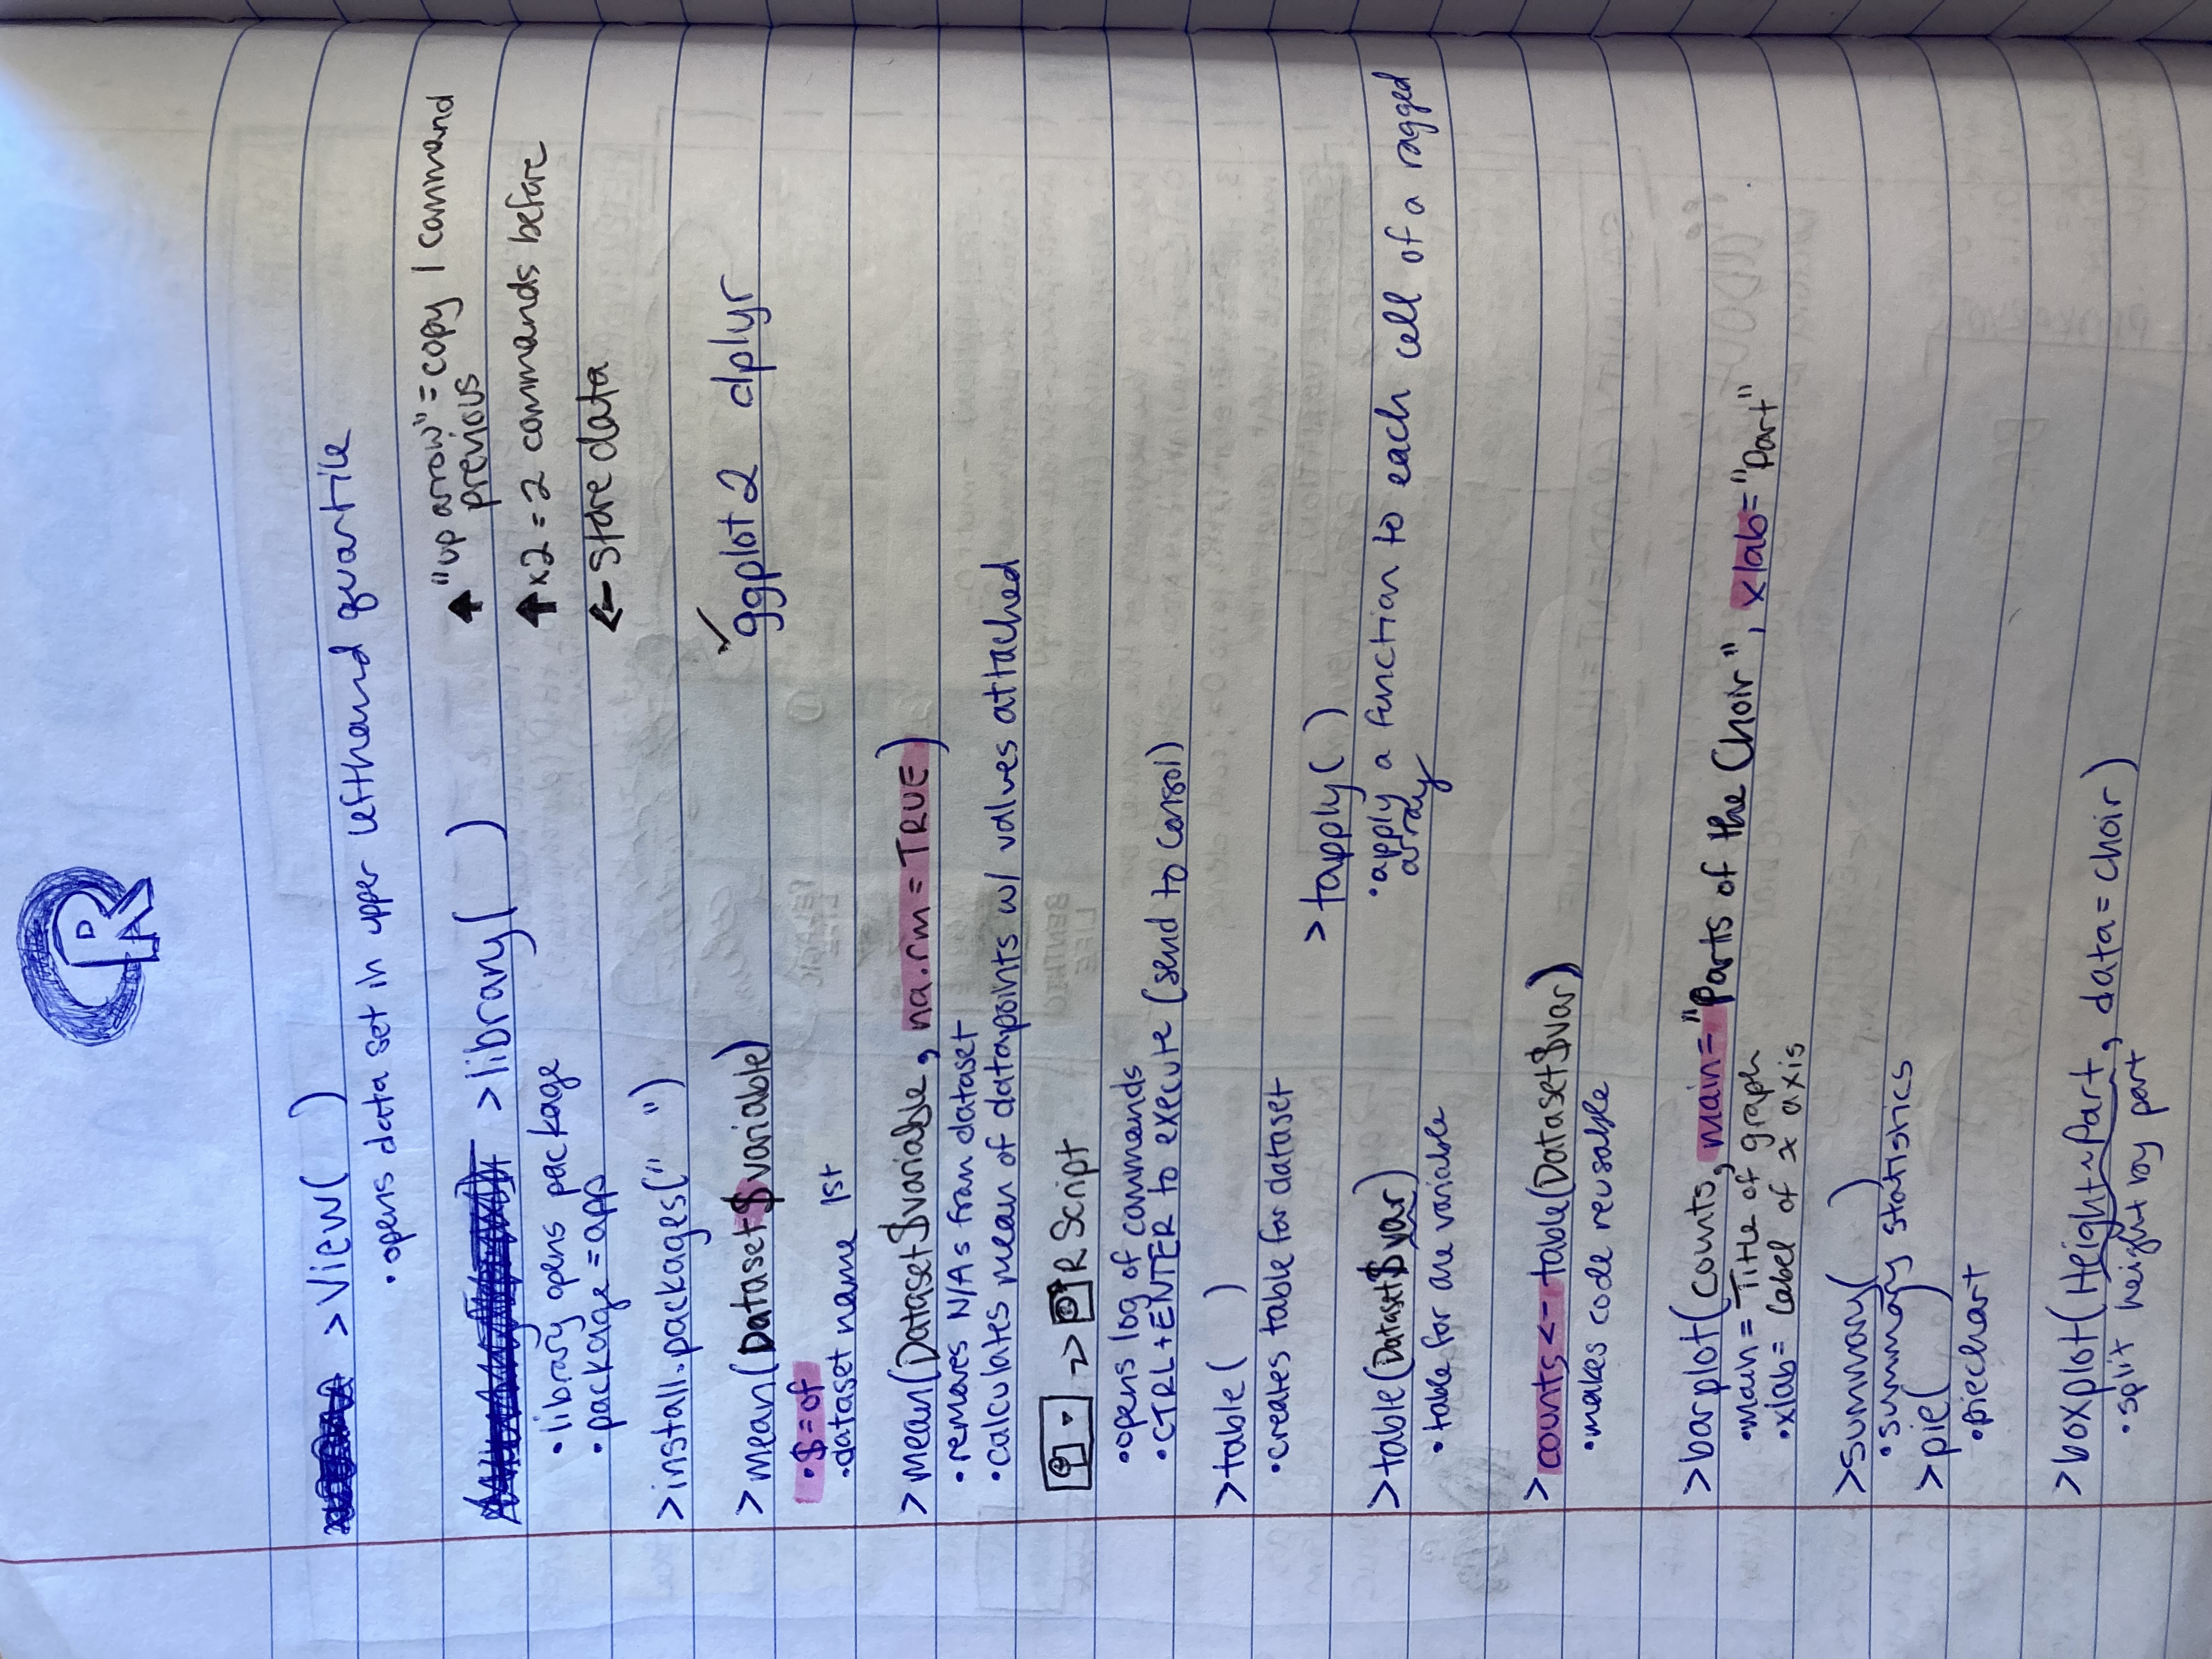 R
>View( )
•opens data set in upper lefthand quartile
>library( )
•library opens package
•package = app
"up arrow" = copy 1 command
previous
↑x2 = 2 commands before
← store data
>install.packages(" ")
>mean(Dataset$variable)
•$=of
•dataset name 1st
✓ggplot2 dplyr
>mean(Dataset$variable, na.rm = TRUE)
•removes N/As from dataset
•calculates mean of datapoints w/ values attached
→ R Script
•opens log of commands
•CTRL+ENTER to execute (send to consol)
>table( )
•creates table for dataset
>tapply( )
•apply a function to each cell of a ragged
array
>table(Dataset$var)
•table for one variable
>counts <- table(Dataset$var)
•makes code reusable
>barplot(counts, main="Parts of the Choir", xlab="Part"
•main = Title of graph
•xlab= Label of x axis
>summary( )
•summary statistics
>pie( )
•piechart
>boxplot(Height~Part, data=choir)
•split height by part